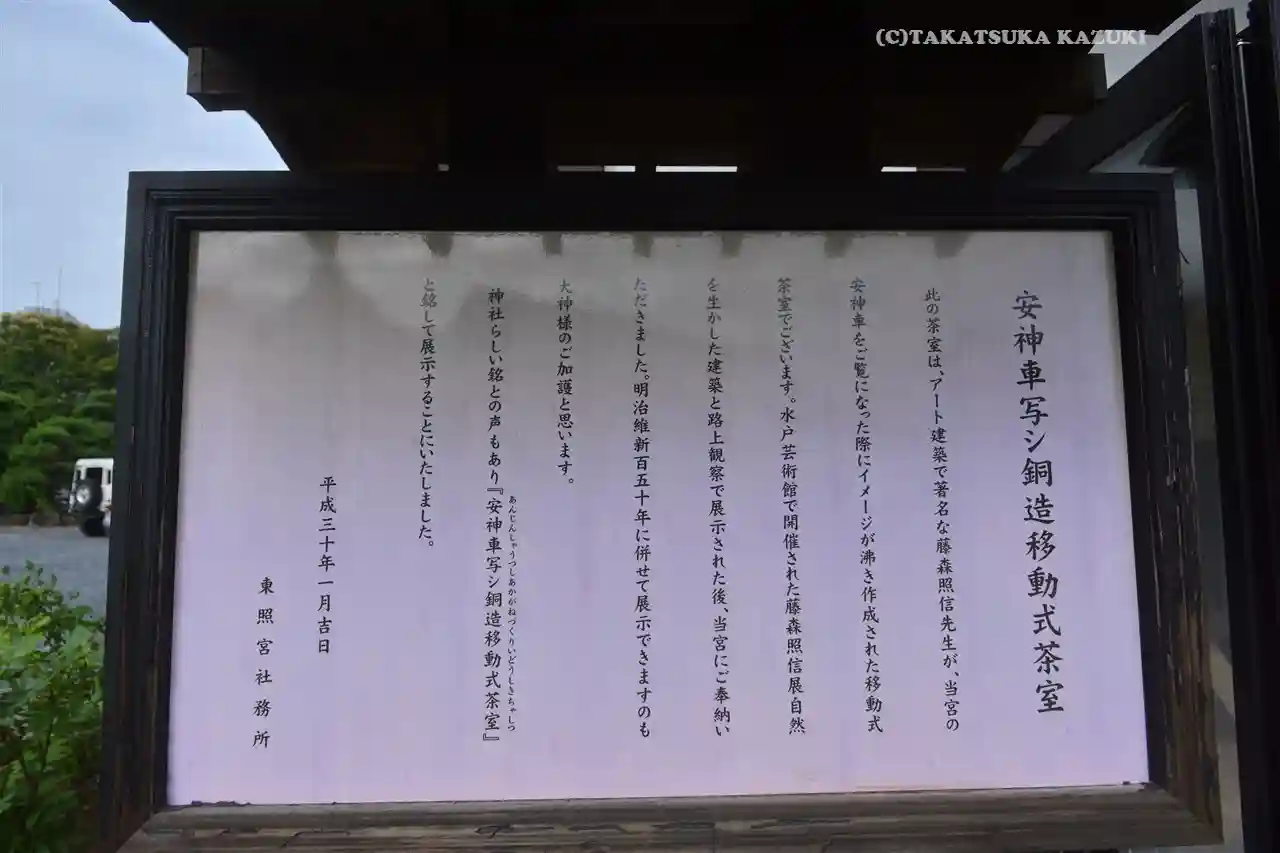 (C)TAKATSUKA KAZUKI
安神車写シ銅造移動式茶室
此の茶室は、アート建築で著名な藤森照信先生が、当宮の
安神車をご覧になった際にイメージが沸き作成された移動式
茶室でございます。水戸芸術館で開催された藤森照信展自然
を生かした建築と路上観察で展示された後、当宮にご奉納い
ただきました。明治維新百五十年に併せて展示できますのも
大神様のご加護と思います。
神社らしい銘との声もあり『安神車写シ銅造移動式茶室』
あんじんしゃうつしあかがねづくりいどうしきちゃしつ
と銘して展示することにいたしました。
平成三十年一月吉日
東照宮社務所